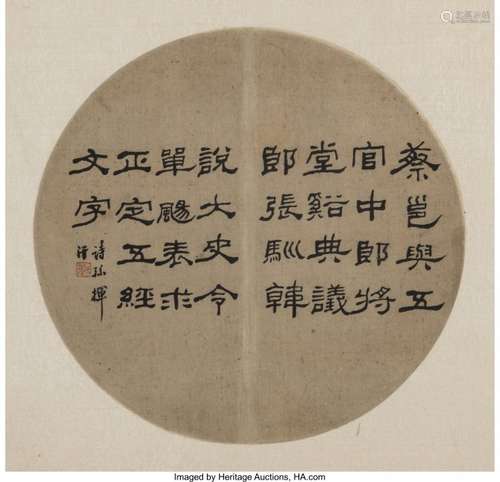 蔡邕與五
官中郎將
堂谿典議
郎張馴韓
說大史令
單颺表求
正定五經
文字
詩孫揮
汗
Imaged by Heritage Auctions, HA.com